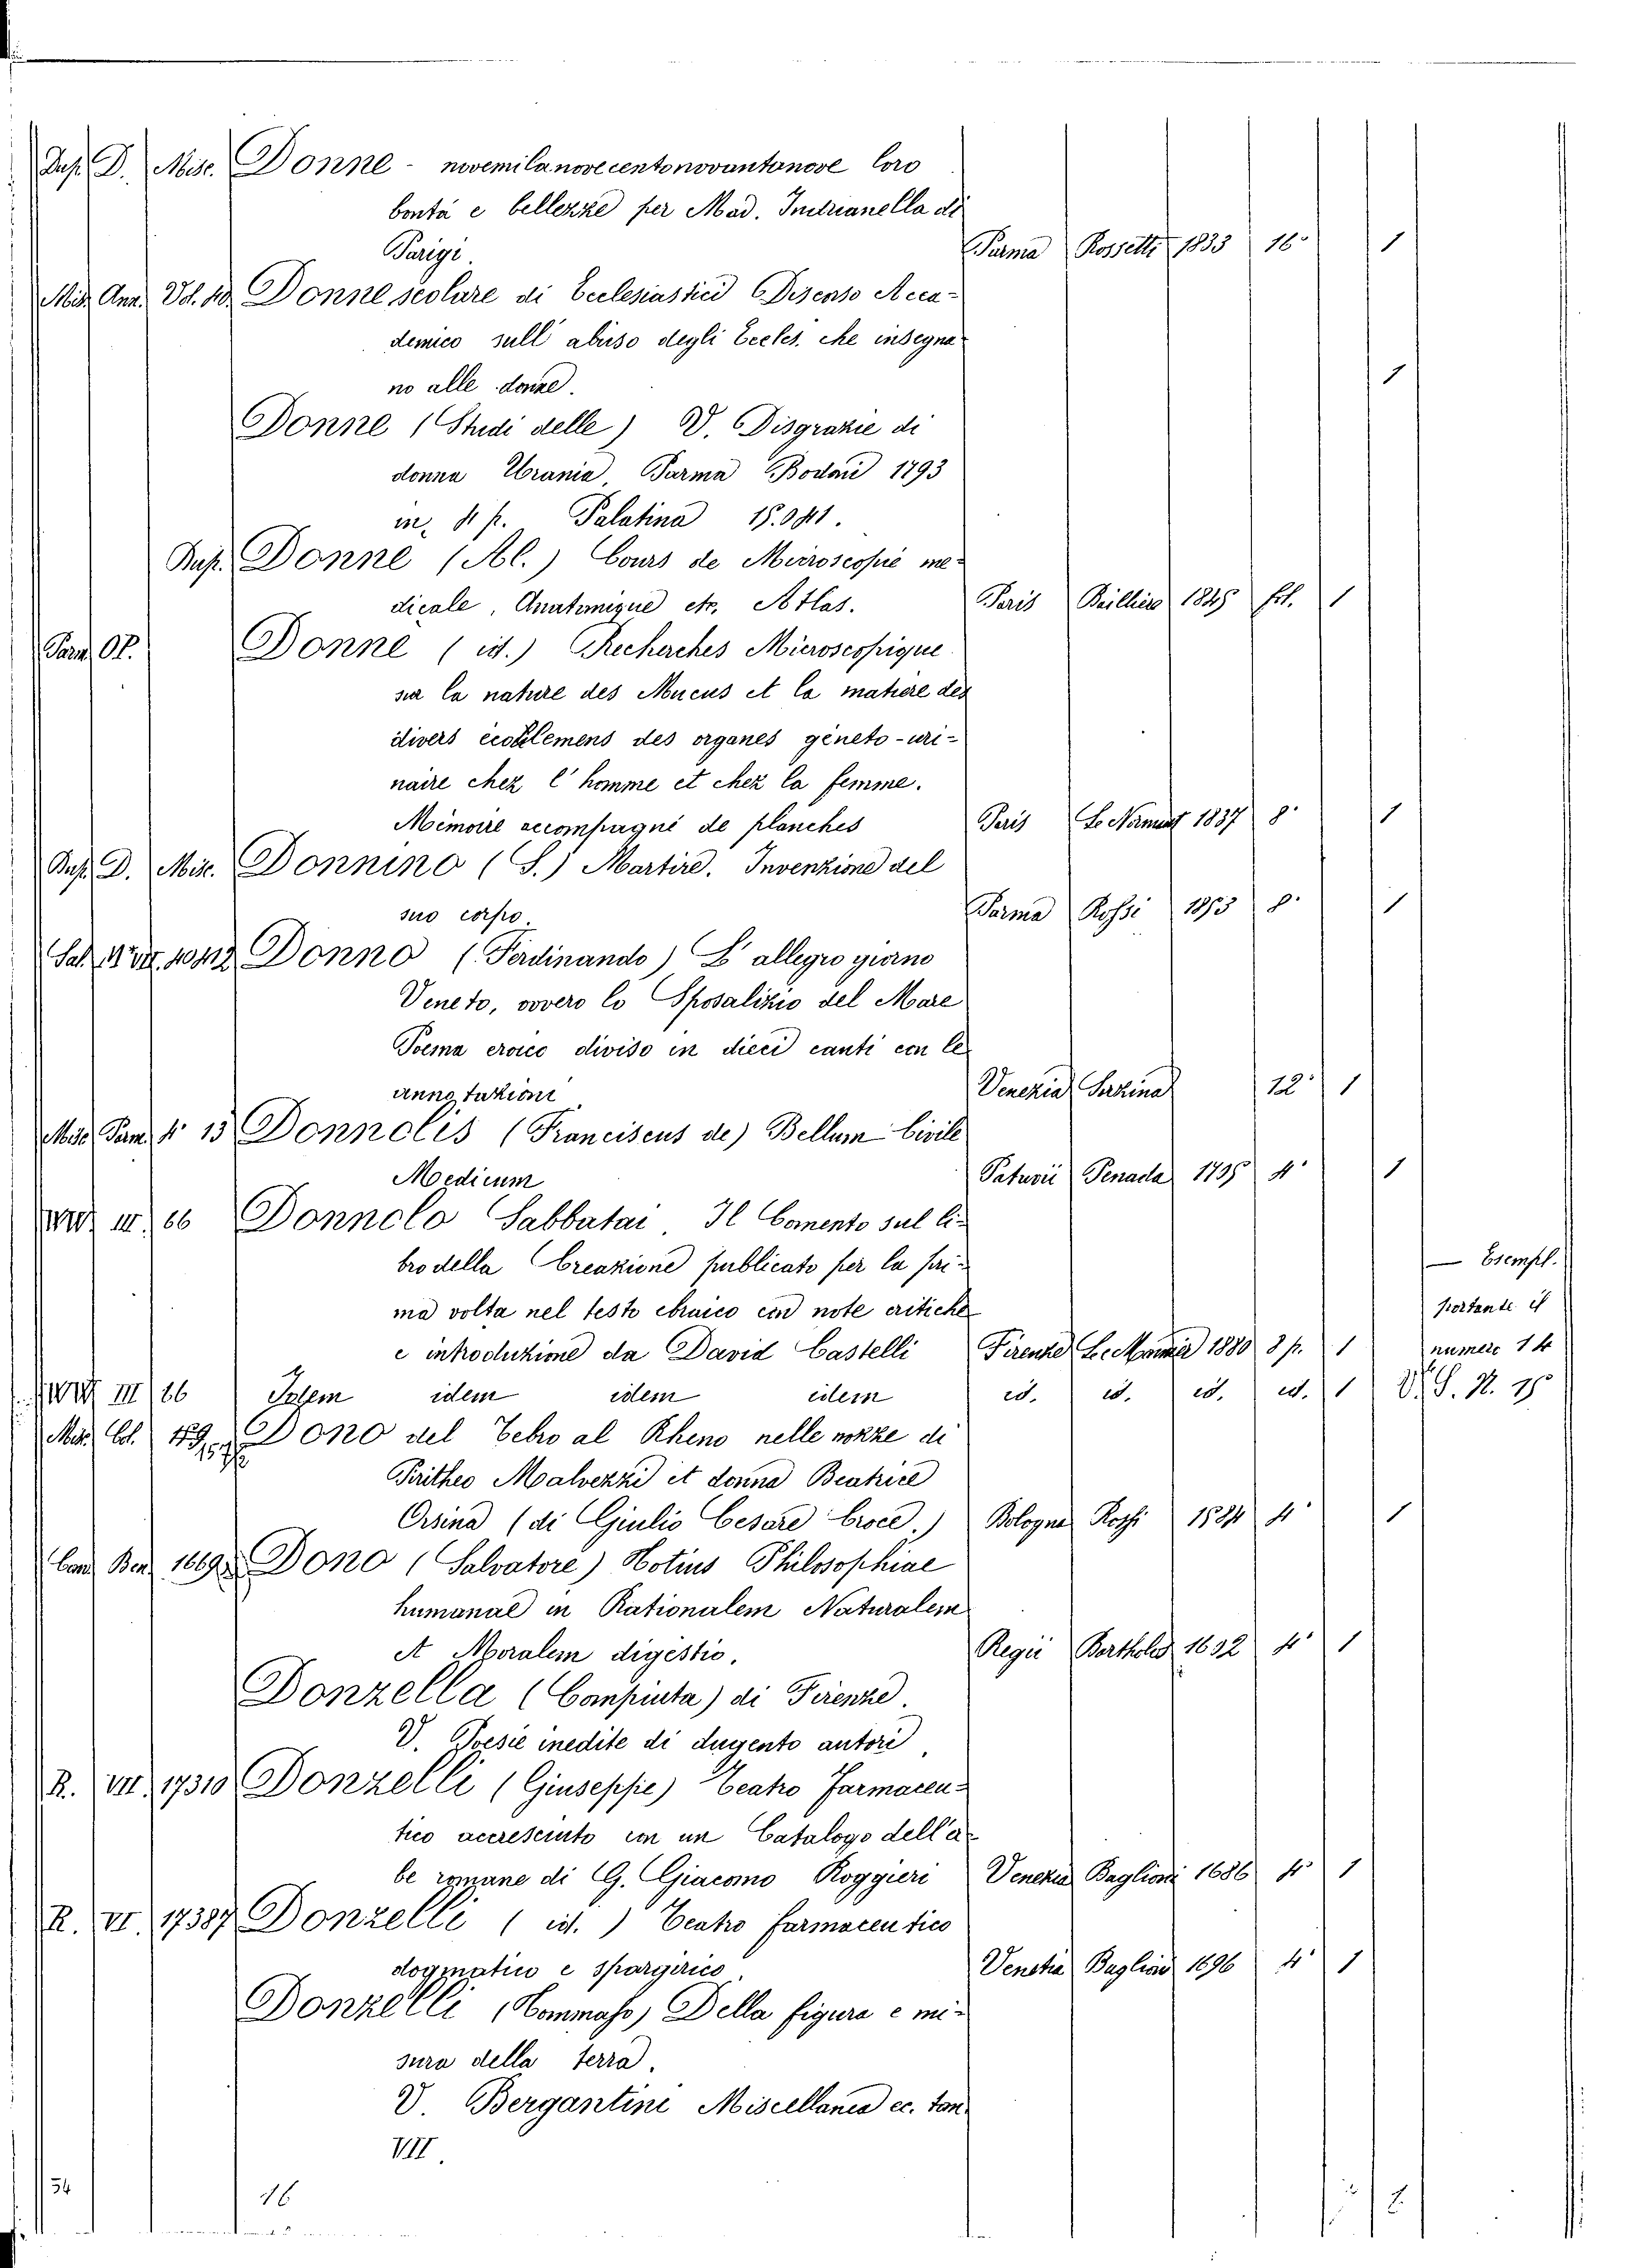 Dup. D. Misc. Donne - novemilanovecentonovantanove loro
bontà e bellezze per Mad. Indrianella di
Parigi. Parma Rossetti 1833 16° 1
Misc. Ann. Vol. 10. Donne scolare di Ecclesiastici Discenso Acca-
demico sull abuso degli Eccles. che insegna
no alle donne. 1
Donne (Studi delle) V. Disgrazie di
donna Urania, Parma Bodoni 1793
in 4 p. Palatina 15.041.
Dup. Donne (Al.) Cours de Microscopie me-
dicale, Anatomique etc. Atlas. Paris Baillier 1845 fol. 1
Parm. Op. Donne (id.) Recherches Microscopique
sur la nature des Mucus et la matière des
divers ecoulemens des organes géneto-uri-
naire chez l'homme et chez la femme.
Mémoire accompagné de planches Paris Le Normant 1837 8° 1
Dup. D. Misc. Donnino (S.) Martire. Invenzione del
suo corpo. Parma Rossi 1853 8° 1
Sal. 10412 Donno (Ferdinando) L'allegro giorno
Veneto, ovvero lo Sposalizio del Mare
Poema eroico diviso in dieci canti con le
annotazioni Venezia Sarzina 12° 1
Misc. Parm. 4° 13 Donnolis (Franciscus de) Bellum Civile
Medicum Patavii Penada 1735 4° 1
III. 66 Donnolo Sabbatai, Il Comento sul li-
bro della Creazione publicato per la pri-
ma volta nel testo ebraico con note critiche
e introduzione da David Castelli Firenze Le Monnier 1880 8 p. 1
— Esempl.
portante il
numero 14
III 66 Idem idem idem idem id. id. id. id. 1 V. S. N. 15
Misc. Col. Dono del Tebro al Rheno nelle nozze di
Piritheo Malvezzi et donna Beatrice
Orsina (di Giulio Cesare Croce.) Bologna Rossi 1584 4° 1
Ben. 1669 Dono (Salvatore) Hotius Philosophiae
humanae in Rationalem Naturalem
et Moralem digestio. Regii Bartholes 1632 4° 1
Donzella (Compiuta) di Firenze.
V. Poesie inedite di dugento autori
R. VII. 17310 Donzelli (Giuseppe) Teatro Farmaceu-
tico accresciuto con un Catalogo dell'er
be romane di G. Giacomo Roggieri Venezia Baglioni 1686 4° 1
R. VI. 17387 Donzelli (id.) Teatro farmaceutico
dogmatico e spargirico Venetia Baglioni 1696 4° 1
Donzelli (Tommaso) Della figura e mi-
sura della terra.
V. Bergantini Miscellanea ec. tom.
VII.
34 16 2